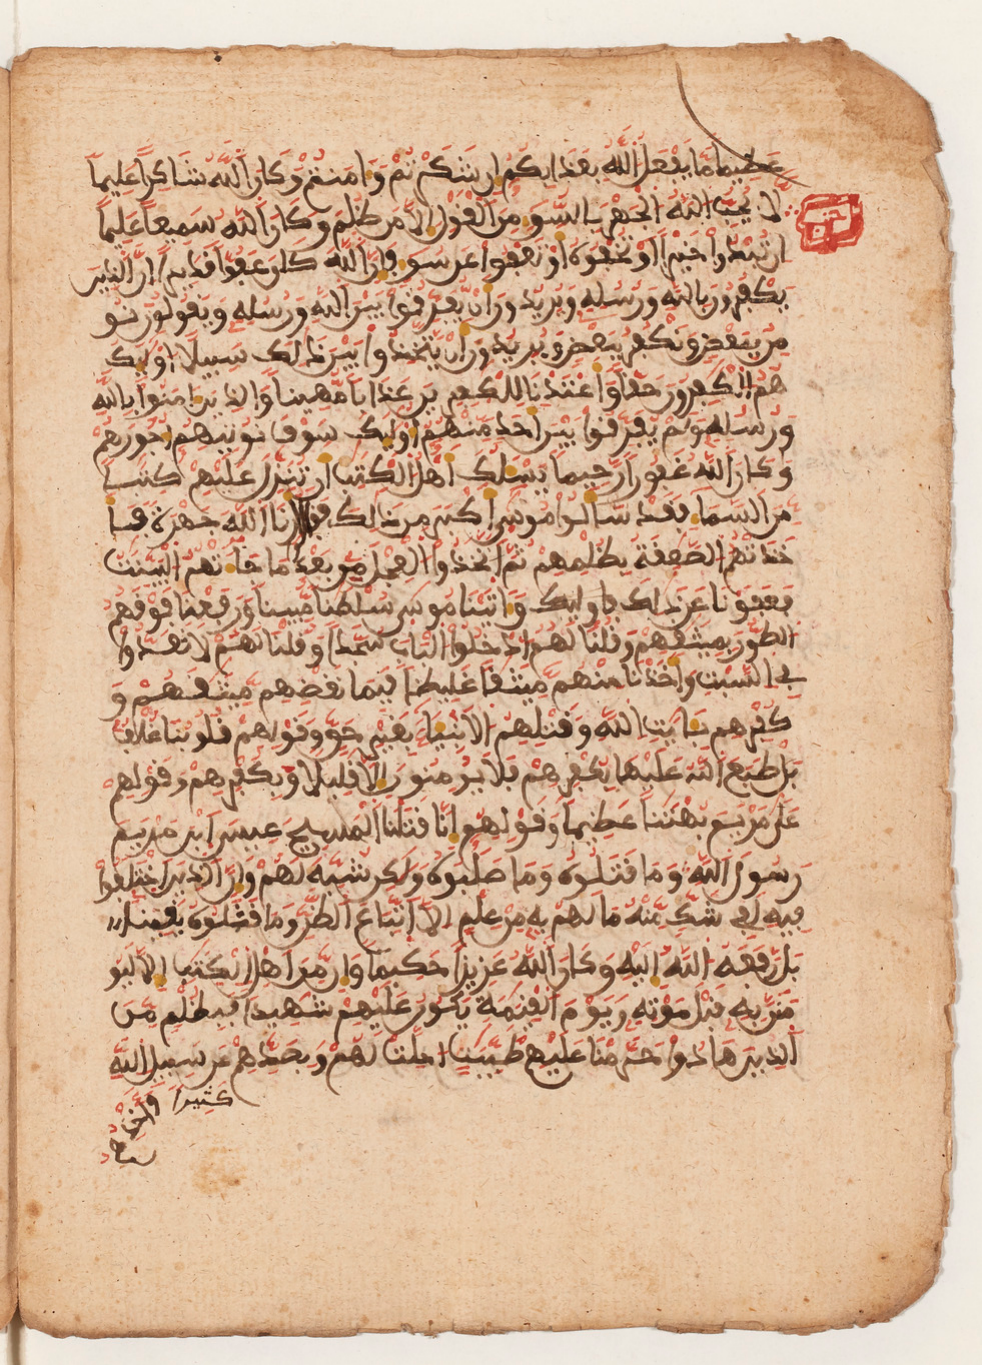 عظيما ما يفعل الله بعذابكم ان شكرتم وءامنتم وكان الله شاكرا عليما
لا يحب الله الجهر بالسوء من القول الا من ظلم وكان الله سميعا عليما
ان تبدوا خيرا او تخفوه او تعفوا عن سوء فان الله كان عفوا قديرا ان الذين
يكفرون بالله ورسله ويريدون ان يفرقوا بين الله ورسله ويقولون نو
من ببعض ونكفر ببعض ويريدون ان يتخذوا بين ذلك سبيلا اوليك
هم الكفرون حقا واعتدنا للكفرين عذابا مهينا والذين ءامنوا بالله
ورسله ولم يفرقوا بين احد منهم اوليك سوف نوتيهم اجورهم
وكان الله غفورا رحيما يسلك اهل الكتب ان تنزل عليهم كتبا
من السماء فقد سالوا موسى اكبر من ذلك ارنا الله جهرة فا
خذتهم الصعقة بظلمهم ثم اتخذوا العجل من بعد ما جاءتهم البينت
فعفونا عن ذلك وءاتينا موسى سلطنا مبينا ورفعنا فوقهم
الطور بميثقهم وقلنا لهم ادخلوا الباب سجدا وقلنا لهم لا تعدوا
في السبت واخذنا منهم ميثقا غليظا فبما نقضهم ميثقهم و
كفرهم بءايت الله وقتلهم الانبياء بغير حق وقولهم قلوبنا غلف
بل طبع الله عليها بكفرهم فلا يومنون الا قليلا وبكفرهم وقولهم
على مريم بهتنا عظيما وقولهم انا قتلنا المسيح عيسى ابن مريم
رسول الله وما قتلوه وما صلبوه ولكن شبه لهم وان الذين اختلفوا
فيه لفي شك منه ما لهم به من علم الا اتباع الظن وما قتلوه يقينا
بل رفعه الله اليه وكان الله عزيزا حكيما وان من اهل الكتب الا ليو
منن به قبل موته ويوم القيمة يكون عليهم شهيدا فبظلم من
الذين هادوا حرمنا عليهم طيبت احلت لهم وبصدهم عن سبيل الله
كثيرا واخذ